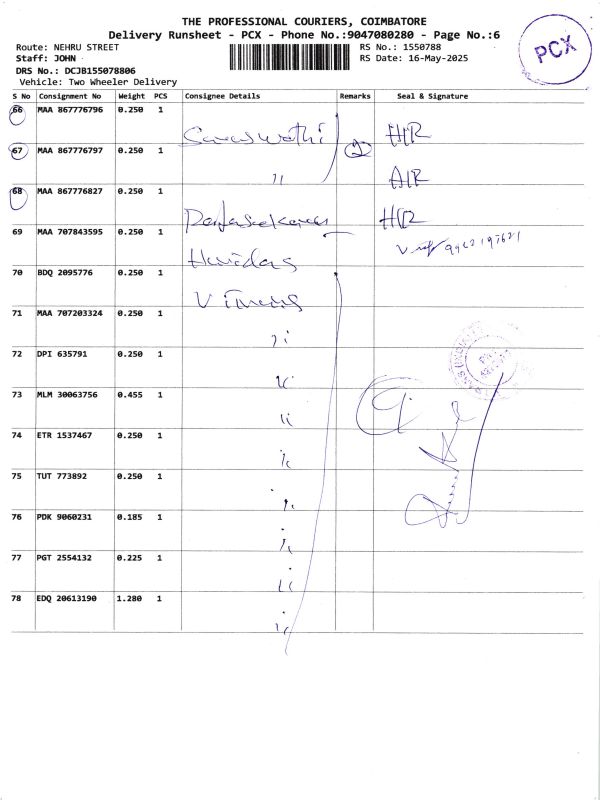 THE PROFESSIONAL COURIERS, COIMBATORE
Delivery Runsheet - PCX - Phone No.:9047080280 - Page No.:6
Route: NEHRU STREET
RS No.: 1550788
Staff: JOHN
RS Date: 16-May-2025
DRS No.: DCJB155078806
Vehicle: Two Wheeler Delivery
PCX
S No Consignment No Weight PCS Consignee Details Remarks Seal & Signature
66 MAA 867776796 0.250 1 Saraswathi
67 MAA 867776797 0.250 1 "
68 MAA 867776827 0.250 1
69 MAA 707843595 0.250 1 Haridas
70 BDQ 2095776 0.250 1
71 MAA 707203324 0.250 1 "
72 DPI 635791 0.250 1 "
73 MLM 30063756 0.455 1 "
74 ETR 1537467 0.250 1 "
75 TUT 773892 0.250 1 "
76 PDK 9060231 0.185 1 "
77 PGT 2554132 0.225 1 "
78 EDQ 20613190 1.280 1 "